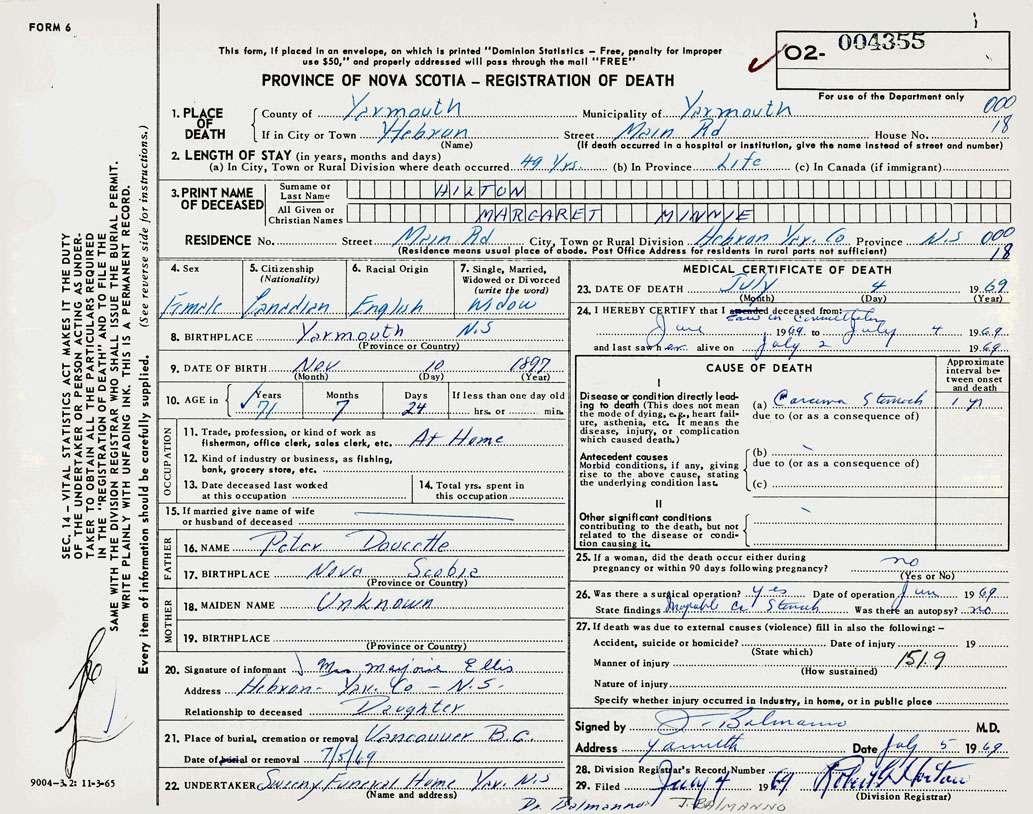 FORM 6
This form, if placed in an envelope, on which is printed "Dominion Statistics – Free, penalty for improper
use $50," and properly addressed will pass through the mail "FREE"
PROVINCE OF NOVA SCOTIA – REGISTRATION OF DEATH
O2- 004355
For use of the Department only
000
18
1. PLACE OF DEATH
County of Yarmouth Municipality of Yarmouth
If in City or Town Hebron Street Main Rd House No.
(Name) (If death occurred in a hospital or institution, give the name instead of street and number)
2. LENGTH OF STAY (in years, months and days)
(a) In City, Town or Rural Division where death occurred 49 Yrs. (b) In Province Life (c) In Canada (if immigrant)
3. PRINT NAME OF DECEASED
Surname or Last Name HILTON
All Given or Christian Names MARGARET MINNIE
RESIDENCE No. Street Main Rd City, Town or Rural Division Hebron Yar. Co Province N.S 000
(Residence means usual place of abode. Post Office Address for residents in rural parts not sufficient) 18
4. Sex Female
5. Citizenship (Nationality) Canadian
6. Racial Origin English
7. Single, Married, Widowed or Divorced (write the word) Widow
8. BIRTHPLACE Yarmouth N.S
(Province or Country)
9. DATE OF BIRTH Nov 10 1897
(Month) (Day) (Year)
10. AGE in Years 71 Months 7 Days 24 If less than one day old hrs. or min.
OCCUPATION
11. Trade, profession, or kind of work as
fisherman, office clerk, sales clerk, etc. At Home
12. Kind of industry or business, as fishing,
bank, grocery store, etc.
13. Date deceased last worked
at this occupation
14. Total yrs. spent in
this occupation
15. If married give name of wife
or husband of deceased
FATHER
16. NAME Peter Doucette
17. BIRTHPLACE Nova Scotia
(Province or Country)
MOTHER
18. MAIDEN NAME Unknown
19. BIRTHPLACE
(Province or Country)
20. Signature of informant Mrs Marjorie Ellis
Address Hebron - Yar. Co - N.S.
Relationship to deceased Daughter
21. Place of burial, cremation or removal Vancouver B.C.
Date of burial or removal 7/5/69
22. UNDERTAKER Sweeny Funeral Home Yar. N.S
(Name and address)
MEDICAL CERTIFICATE OF DEATH
23. DATE OF DEATH July 4 1969
(Month) (Day) (Year)
24. I HEREBY CERTIFY that I attended deceased from:
Saw in
June 1969 to July 4 1969
and last saw her alive on July 2 1969
CAUSE OF DEATH
Approximate interval between onset and death
I
Disease or condition directly leading
to death (This does not mean
the mode of dying, e.g., heart failure,
asthenia, etc. It means the
disease, injury, or complication
which caused death.)
(a) Carcinoma Stomach 1 yr
due to (or as a consequence of)
Antecedent causes
Morbid conditions, if any, giving
rise to the above cause, stating
the underlying condition last.
(b)
due to (or as a consequence of)
(c)
II
Other significant conditions
contributing to the death, but not
related to the disease or condition
causing it.
25. If a woman, did the death occur either during
pregnancy or within 90 days following pregnancy? no
(Yes or No)
26. Was there a surgical operation? yes Date of operation June 1969
State findings Inoperable Ca Stomach Was there an autopsy? no
27. If death was due to external causes (violence) fill in also the following: –
Accident, suicide or homicide? Date of injury 19
(State which)
Manner of injury 151.9
(How sustained)
Nature of injury
Specify whether injury occurred in industry, in home, or in public place
Signed by J. Balmanno M.D.
Address Yarmouth Date July 5 1969
28. Division Registrar's Record Number
29. Filed July 4 1969 Robert Horton
(Division Registrar)
Dr. Balmanno J. BALMANNO
SEC. 14 – VITAL STATISTICS ACT MAKES IT THE DUTY
OF THE UNDERTAKER OR PERSON ACTING AS UNDERTAKER
TO OBTAIN ALL THE PARTICULARS REQUIRED
IN THE "REGISTRATION OF DEATH" AND TO FILE THE
SAME WITH THE DIVISION REGISTRAR WHO SHALL ISSUE THE BURIAL PERMIT.
WRITE PLAINLY WITH UNFADING INK. THIS IS A PERMANENT RECORD.
Every item of information should be carefully supplied. (See reverse side for instructions.)
9004-3.2: 11-3-65